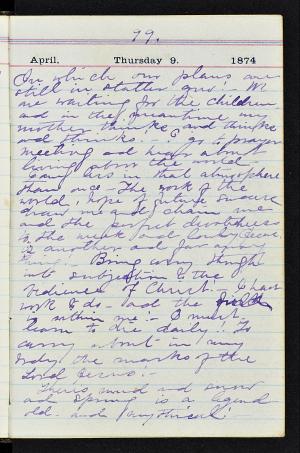 99.
April. Thursday 9. 1874
In which our plans are
still in statter quo! We
are waiting for the children
and in the meantime my
mother thinks and thinks
and thinks. Go to prayer
meeting and hear about
living above the world
Cang live in that atmosphere
than once - The work of the
world, hope of future success
draw me and chain me
and the perfect
is the work and
another and far away
thing. Bring every thought
into subjection to the
obedience of Christ. I have
work to do - and the
is within me! - I must
learn to die daily! To
carry about in my
body the marks of the
Lord Jesus! -
There's mud and snow
and spring is a legend
old - and mythical!